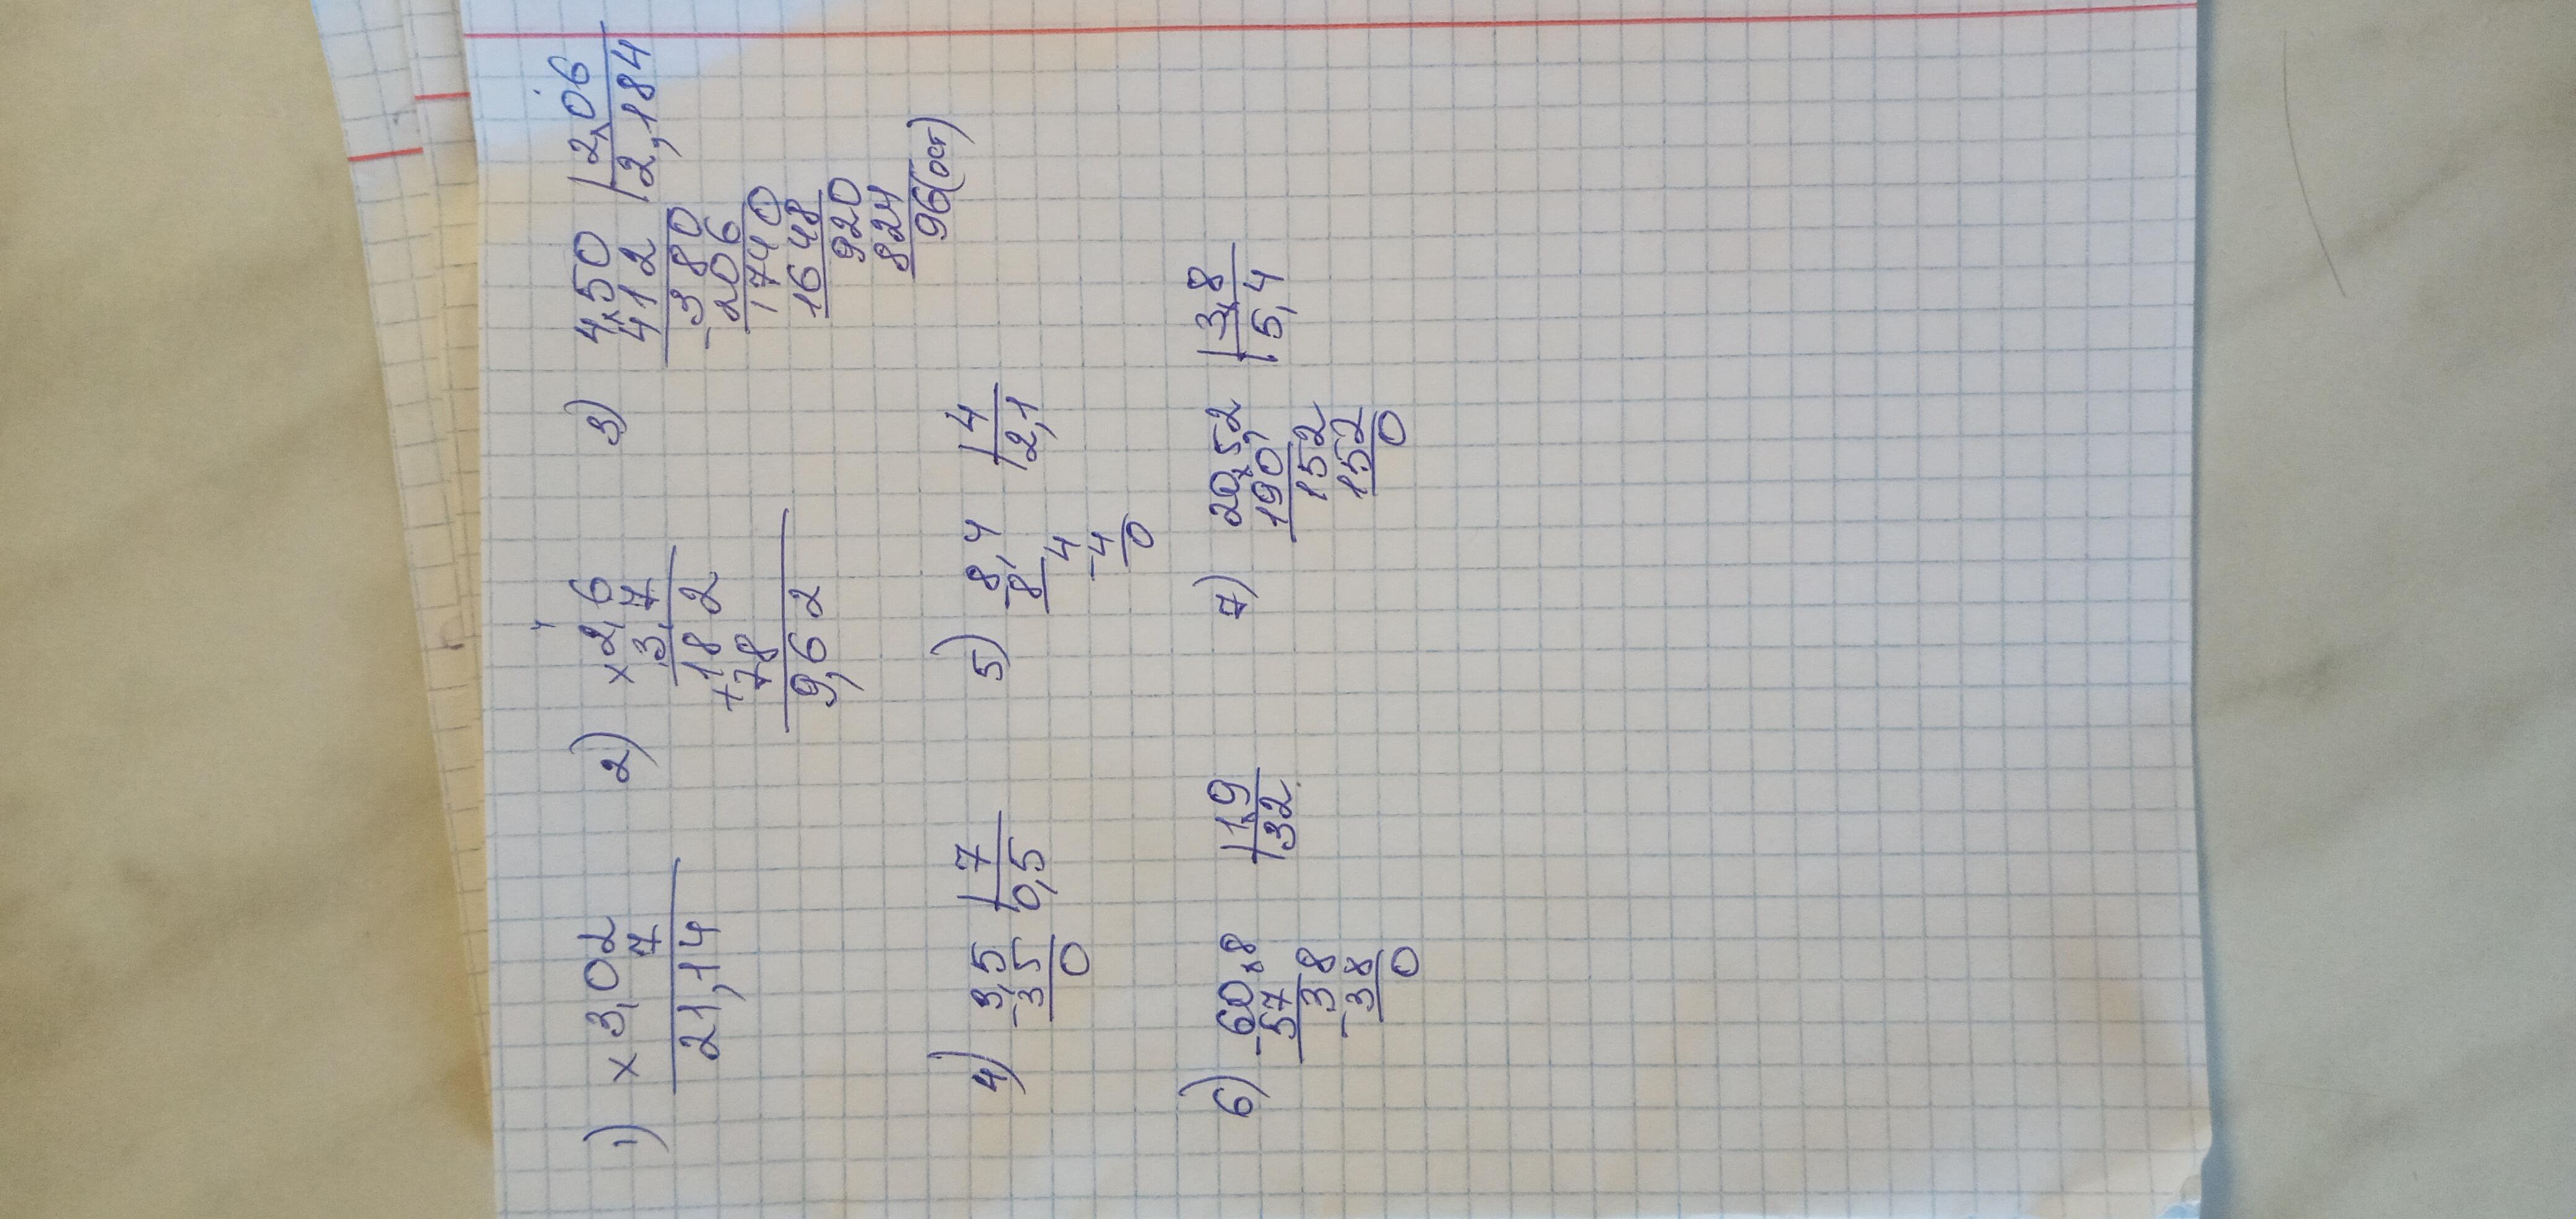 1) × 3,02
7
21,14
2) × 2,6
3,7
182
+ 78
9,62
3) 4,50 | 2,06
412 | 2,184
- 380
206
1740
1648
920
824
96(ост)
4) 3,5 | 7
- 35 | 0,5
0
5) 8,4 | 4
- 8 | 2,1
4
- 4
0
6) - 60,8 | 1,9
57 | 32
38
- 38
0
7) 20,52 | 3,8
190, | 5,4
152
152
0